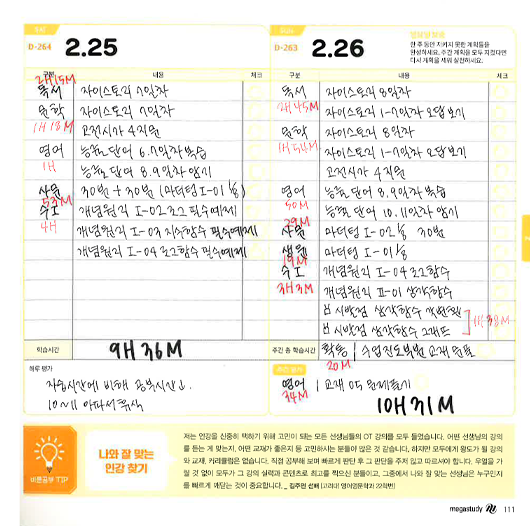 SAT
D-264 2.25
구분 내용 체크
2H 15M
독서 자이스토리 7일차
문학 자이스토리 7일차
1H 18M 고전시가 4지원
영어 능률 단어 6.7일차 복습
1H 능률 단어 8.9일차 암기
사문 30번 + 30번 (마더텅 I-01 1/8)
53M
수I 개념원리 I-02 로그 필수예제
4H 개념원리 I-03 지수함수 필수예제
개념원리 I-04 로그함수 필수예제
학습시간 9H 36M
하루 평가
자습시간에 비해 공부시간↓
10~11 아파서 휴식
SUN
D-263 2.26
한 주 동안 지키지 못한 계획들을
완성하세요. 주간 계획을 모두 지켰다면
다시 계획을 세워 실천하세요.
구분 내용 체크
독서 자이스토리 8일차
2H 45M 자이스토리 1-7일차 오답 보기
문학 자이스토리 8일차
1H 54M 자이스토리 1-7일차 오답 보기
고전시가 4지원
영어 능률 단어 8.9일차 복습
50M 능률 단어 10.11일차 암기
29M
사문 마더텅 I-02 1/8 30번
생윤 마더텅 I-01 1/8
19M
수I 개념원리 I-04 로그함수
3H 3M 개념원리 II-01 삼각함수
시발점 삼각함수
시발점 삼각함수 그래프
1H 38M
주간 총 학습시간 확통 | 수업진도부분 교재 완료
20M
영어 | 교재 05 문제풀기
34M
10H 31M
바른공부 TIP
나와 잘 맞는
인강 찾기
저는 인강을 신중히 택하기 위해 고민이 되는 모든 선생님들의 OT 강의를 모두 들었습니다. 어떤 선생님의 강의
를 듣는 게 맞는지, 어떤 교재가 좋은지 등 고민하시는 분들이 많은 것 같습니다. 하지만 모두에게 왕도가 될 강의
와 교재, 커리큘럼은 없습니다. 직접 공부해 보며 빠르게 판단 후 그 판단을 주저 않고 따르셔야 합니다. 우열을 가
릴 것 없이 모두가 그 강의 실력과 콘텐츠로 최고를 찍으신 분들이고, 그중에서 나와 잘 맞는 선생님은 누구인지
를 빠르게 깨닫는 것이 중요합니다.
megastudy 111